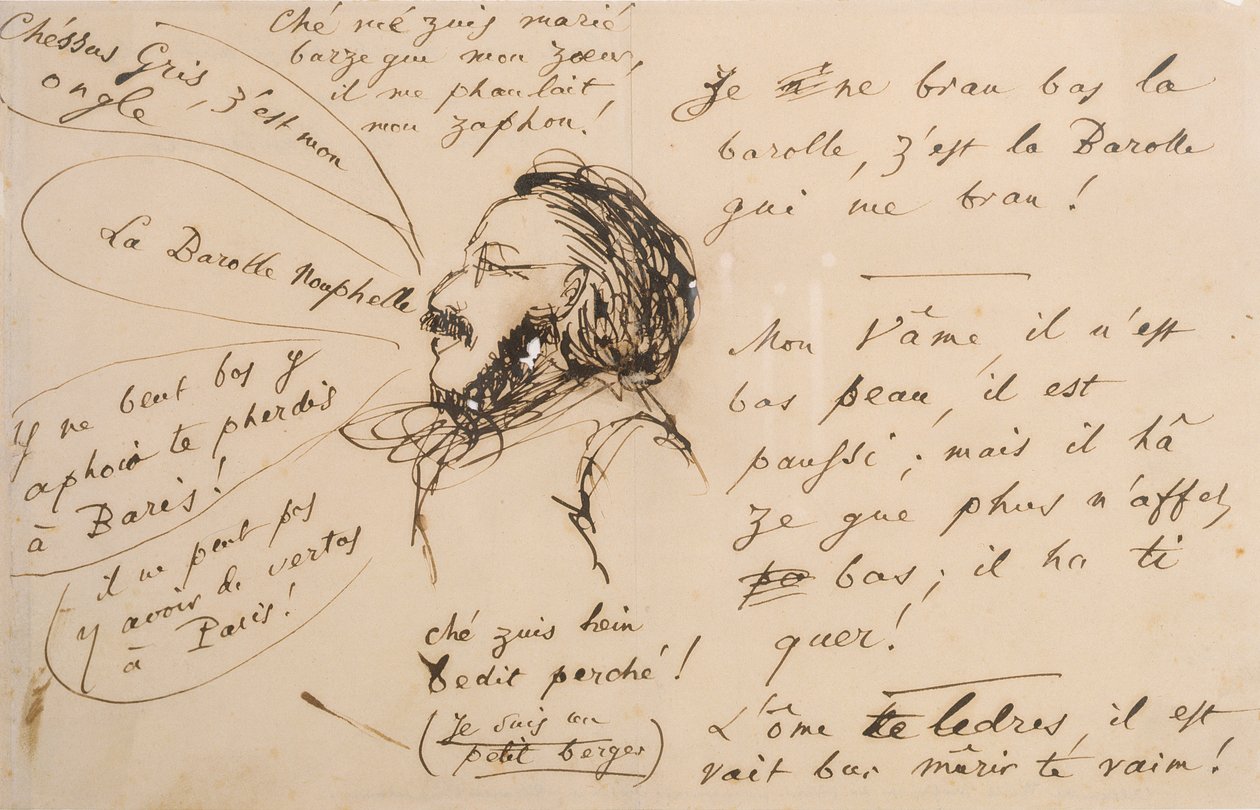 Chéssus Gris, z'est mon
ongle
Ché mé zuis marié
barzegue mon zoeur,
il me phaulait
mon zaphon!
La Barolle Nouphelle
y ne beut bas y
aphoir te pherdis
à Baris!
il ne peut pas
y avoir de vertas
à Paris!
ché zuis hein
bedit perché!
(je suis un
petit berger)
Je ne bran bas la
barolle, z'est la Barolle
gui me bran!
Mon Vâme, il n'est
bas peau, il est
paussi; mais il hâ
ze gue phus n'affez
bas; il ha ti
quer!
L'ôme te ledres, il est
vait bur mûrir té vaim!